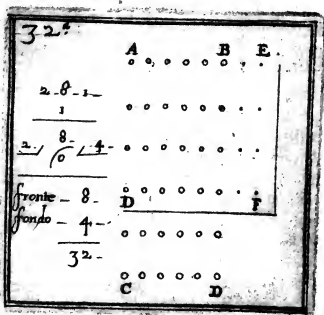 32.
A B E
2-8-1-
1
8-
2. 0 4-
fronte - 8-
fondo - 4-
32-
D F
C D